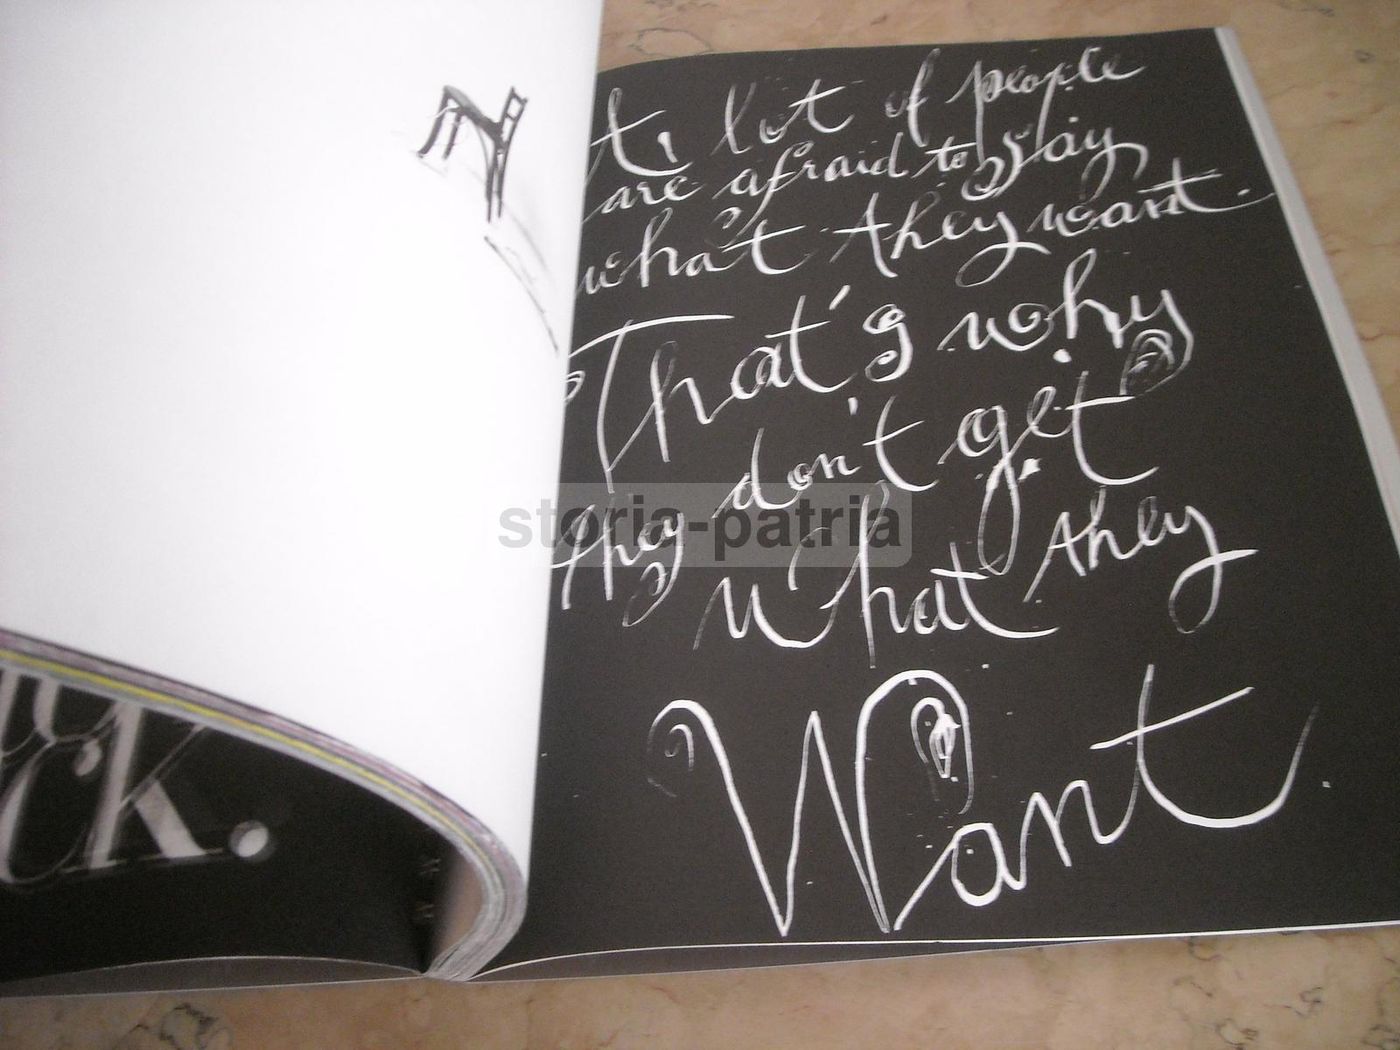 A lot of people
are afraid to say
what they want.
That's why
they don't get
what they
Want.
ck.
storia-patria